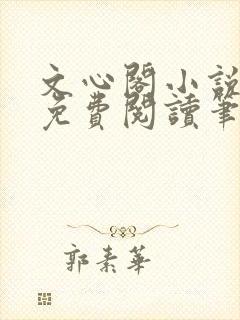 文心閣小說
免費閱讀筆
郭素華